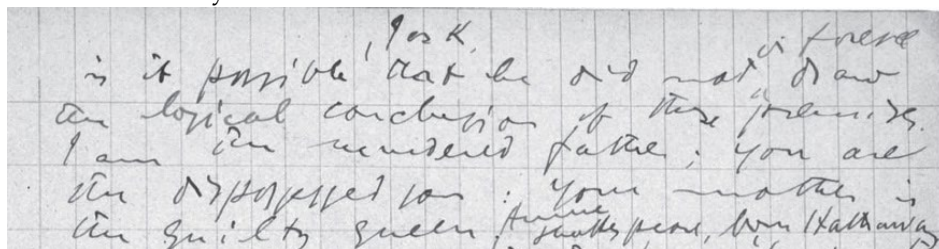 , I ask, or foresee
is it possible that he did not draw
the logical conclusion of those premises.
I am the murdered father; you are
the dispossessed son: your mother is
Anne
the guilty queen, Shakespeare, born Hathaway